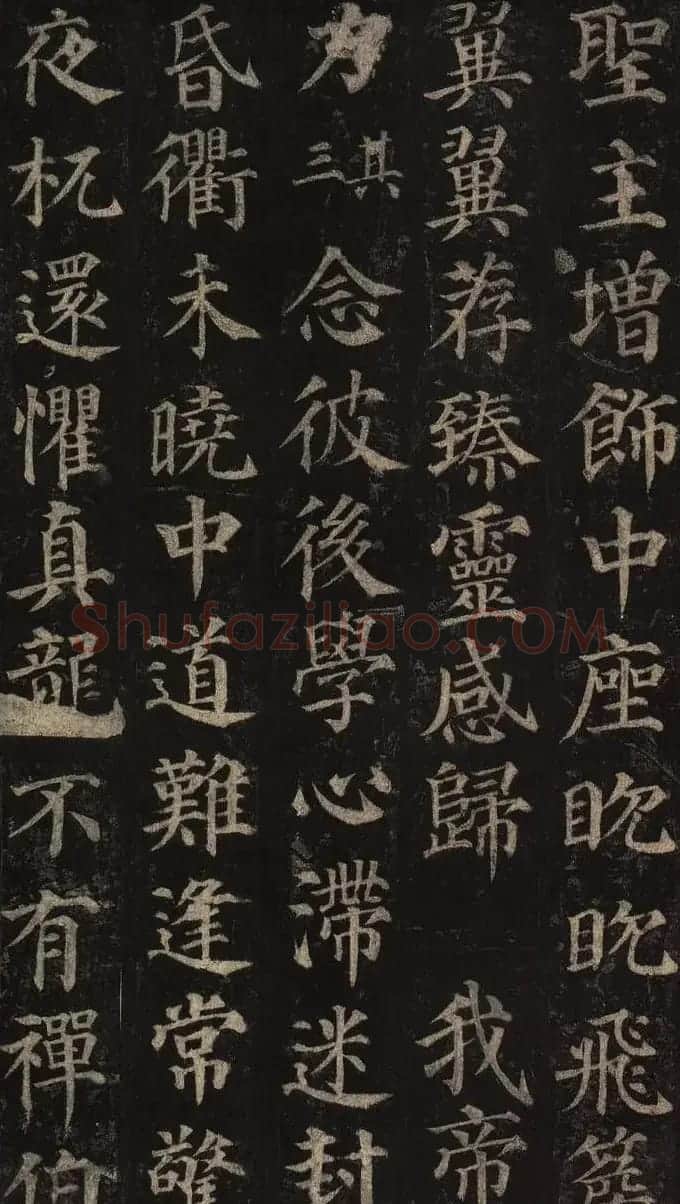 聖主增飾中座眈眈飛簷
翼翼荐臻靈感歸我帝
力其三念彼後學心滯迷封
昏衢未曉中道難逢常驚
夜杌還懼真龍不有禪伯
Shufaziliao.COM